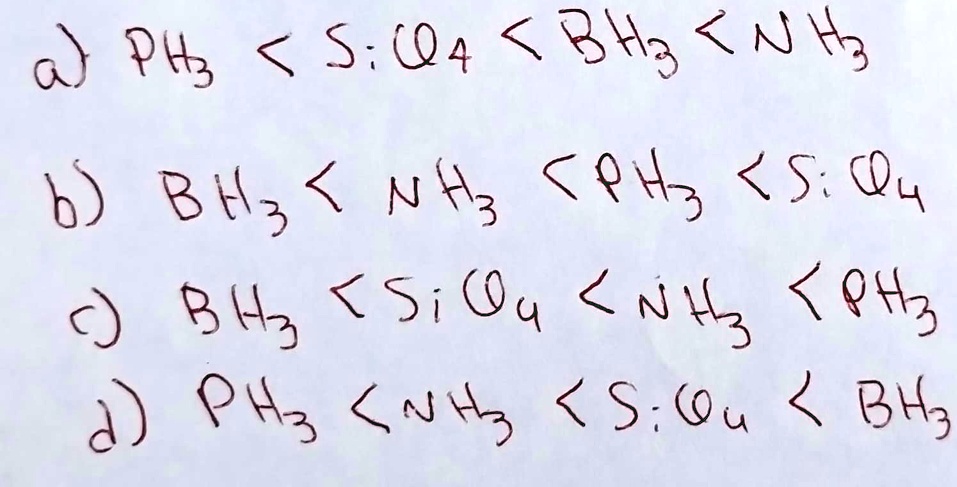 a) PH₃ < SiCl₄ < BH₃ < NH₃
b) BH₃ < NH₃ < PH₃ < SiCl₄
c) BH₃ < SiCl₄ < NH₃ < PH₃
d) PH₃ < NH₃ < SiCl₄ < BH₃